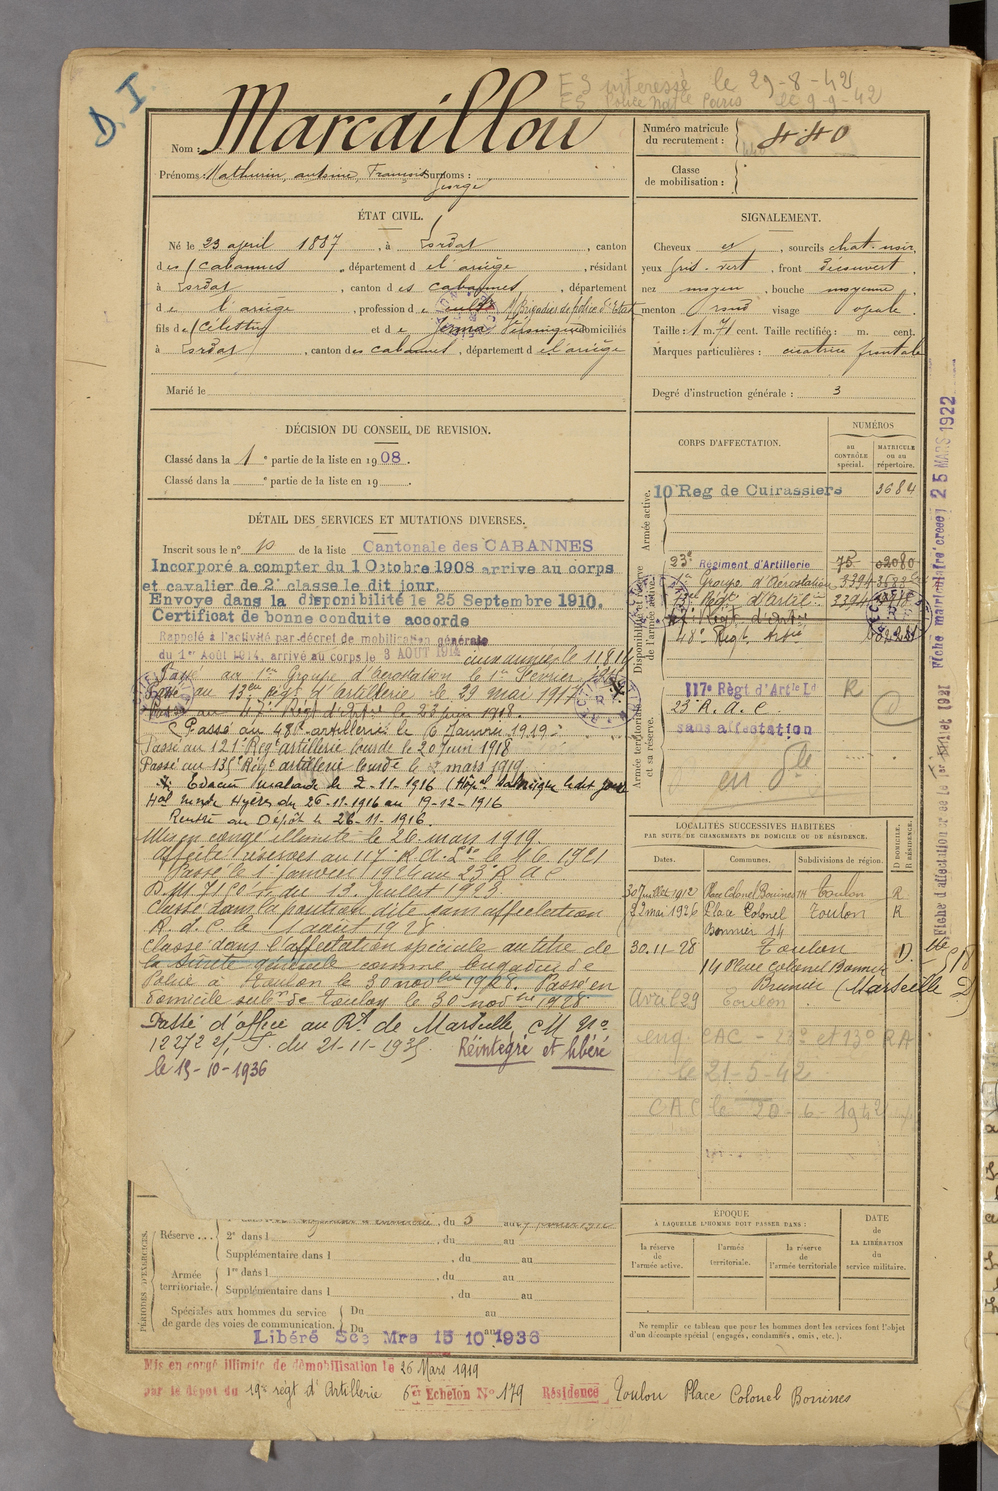 D.I.
ES interessé le 29-8-42
ES Police Nat le Paris le 9-9-42
Nom : Marcaillou
Prénoms : Mathurin, antoine, François Surnoms :
George
Numéro matricule du recrutement : 440
Classe de mobilisation :
ÉTAT CIVIL.
Né le 23 april 1887, à Lordat, canton
des Cabannes, département de l'ariège, résidant
à Lordat, canton des cabannes, département
de l'ariège, profession de Brigadier de police d'Etat
fils de Célestin et de domiciliés
à Lordat, canton des cabannes, département de l'ariège
Marié le
SIGNALEMENT.
Cheveux et, sourcils chat. noir,
yeux gris-vert, front découvert,
nez moyen, bouche moyenne,
menton rond visage ovale.
Taille : 1 m. 71 cent. Taille rectifiée : m. cent.
Marques particulières : cicatrice frontale
Degré d'instruction générale : 3
DÉCISION DU CONSEIL DE REVISION.
Classé dans la 1e partie de la liste en 1908.
Classé dans la e partie de la liste en 19 .
CORPS D'AFFECTATION.
NUMÉROS
au CONTRÔLE spécial.
MATRICULE ou au répertoire.
Armée active.
10 Reg de Cuirassiers 3684
Disponibilité et réserve de l'armée active.
23e Régiment d'Artillerie 75 02080
1er Groupe d'Aérostation 3394
48e Regt Artie
Armée territoriale et sa réserve.
117e Règt d'Artie Ld R
23e R.A.C.
sans affectation
en dle
DÉTAIL DES SERVICES ET MUTATIONS DIVERSES.
Inscrit sous le n° 10 de la liste Cantonale des CABANNES
Incorporé a compter du 1 Octobre 1908 arrive au corps
et cavalier de 2e classe le dit jour.
Envoye dans la disponibilité le 25 Septembre 1910.
Certificat de bonne conduite accorde
Rappelé à l'activité par décret de mobilisation générale
du 1er Août 1914, arrivé au corps le 3 AOUT 1914
Passé au 1er Groupe d'aerostation le 1er Fevrier
Passé au 13eme Regt d'artillerie le 29 mai 1917
Passé au 47e Regt d'Artie le 23 juin 1918.
Passé au 48e artillerie le 16 Janvier 1919
Passé au 121e Regt artillerie lourde le 20 Juin 1918
Passé au 135e Regt artillerie lourde le 2 mars 1919
Evacué malade le 2-11-1916
Hal Hyères du 26-11-1916 au 19-12-1916
Rentré au Dépôt le 26-11-1916.
Mis en congé illimité le 26 mars 1919.
Affecté réserves au 117e R.A.Lde le 1.6.1921
Passé le 1er janvier 1924 au 23e R.A.C.
D.M. du 13. Juillet 1928.
Classé dans la position dite sans affectation
R.d.C. le 1 août 1928
Classé dans l'affectation spéciale au titre de
la Sûreté générale comme brigadier de
Police à Toulon le 30 novbre 1928. Passé en
domicile subon de Toulon le 30 novbre 1928
Passé d'office au Rt de Marseille CM no
12272 2/1 T. du 21-11-1935. Réintégré et libéré
le 15-10-1936
LOCALITÉS SUCCESSIVES HABITÉES
PAR SUITE DE CHANGEMENTS DE DOMICILE OU DE RÉSIDENCE.
Dates. Communes. Subdivisions de région. D DOMICILE. R RÉSIDENCE.
30 Juillet 1912 Place Colonel Bonnier 14 Toulon R
22 mai 1926 Place Colonel Bonnier 14 Toulon R
30.11-28 Toulon D.
14 Place Colonel Bonnier
Brunier (Marseille D)
Avril 29 Toulon
enq. CAC - 23e et 13e RA
le 21-5-42
CAC le 20-6-1942
PÉRIODES D'EXERCICES.
du 5 au
Réserve... 2e dans l , du au
Supplémentaire dans l , du au
Armée territoriale. 1re dans l , du au
Supplémentaire dans l , du au
Spéciales aux hommes du service de garde des voies de communication. Du au
Du au
Libéré Sce Mre 15 10 1936
ÉPOQUE
À LAQUELLE L'HOMME DOIT PASSER DANS :
la réserve de l'armée active.
l'armée territoriale.
la réserve de l'armée territoriale
DATE de LA LIBÉRATION du service militaire.
Ne remplir ce tableau que pour les hommes dont les services font l'objet
d'un décompte spécial (engagés, condamnés, omis, etc.).
Mis en congé illimité de démobilisation le 26 Mars 1919
par le dépot du 19e régt d'Artillerie 6e Echelon N° 179 Résidence Toulon Place Colonel Bonnier
Fiche matriculaire créée 25 MARS 1922